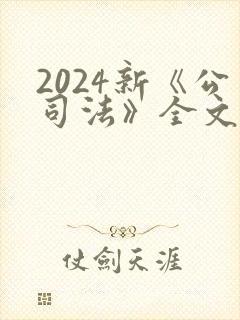 2024新《公
司法》全文
仗劍天涯